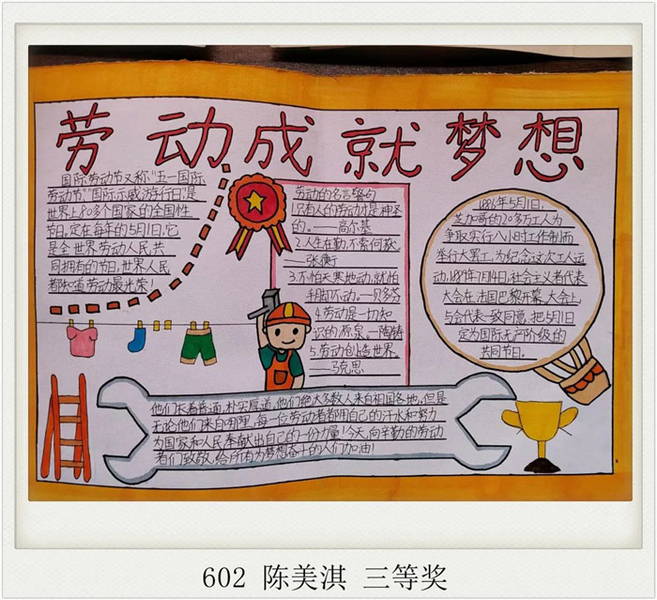 劳动成就梦想
国际劳动节又称"五一国际
劳动节""国际示威游行日",是
世界上80多个国家的全国性
节日,定在每年的5月1日,它
是全世界劳动人民共
同拥有的节日,世界人民
都知道劳动最光荣!
劳动的名言警句
1.只有人的劳动才是神圣
的。——高尔基
2.人生在勤,不索何获。
——张衡
3.不怕天寒地动,就怕
手脚不动。—贝多芬
4.劳动是一切知
识的源泉。—陶铸
5.劳动创造世界。
——马克思
1886年5月1日,
芝加哥的20多万工人为
争取实行八小时工作制而
举行大罢工,为纪念这次工人运
动,1889年7月14日,社会主义者代表
大会在法国巴黎开幕,大会上
与会代表一致同意,把5月1日
定为国际无产阶级的
共同节日。
他们长着普通,朴实厚道,他们绝大多数人来自祖国各地,但是
无论他们来自何里,每一位劳动者都用自己的汗水和努力
为国家和人民奉献出自己的一份力量!今天,向辛勤的劳动
者们致敬,给所有为梦想奋斗的人们加油!
602 陈美淇 三等奖